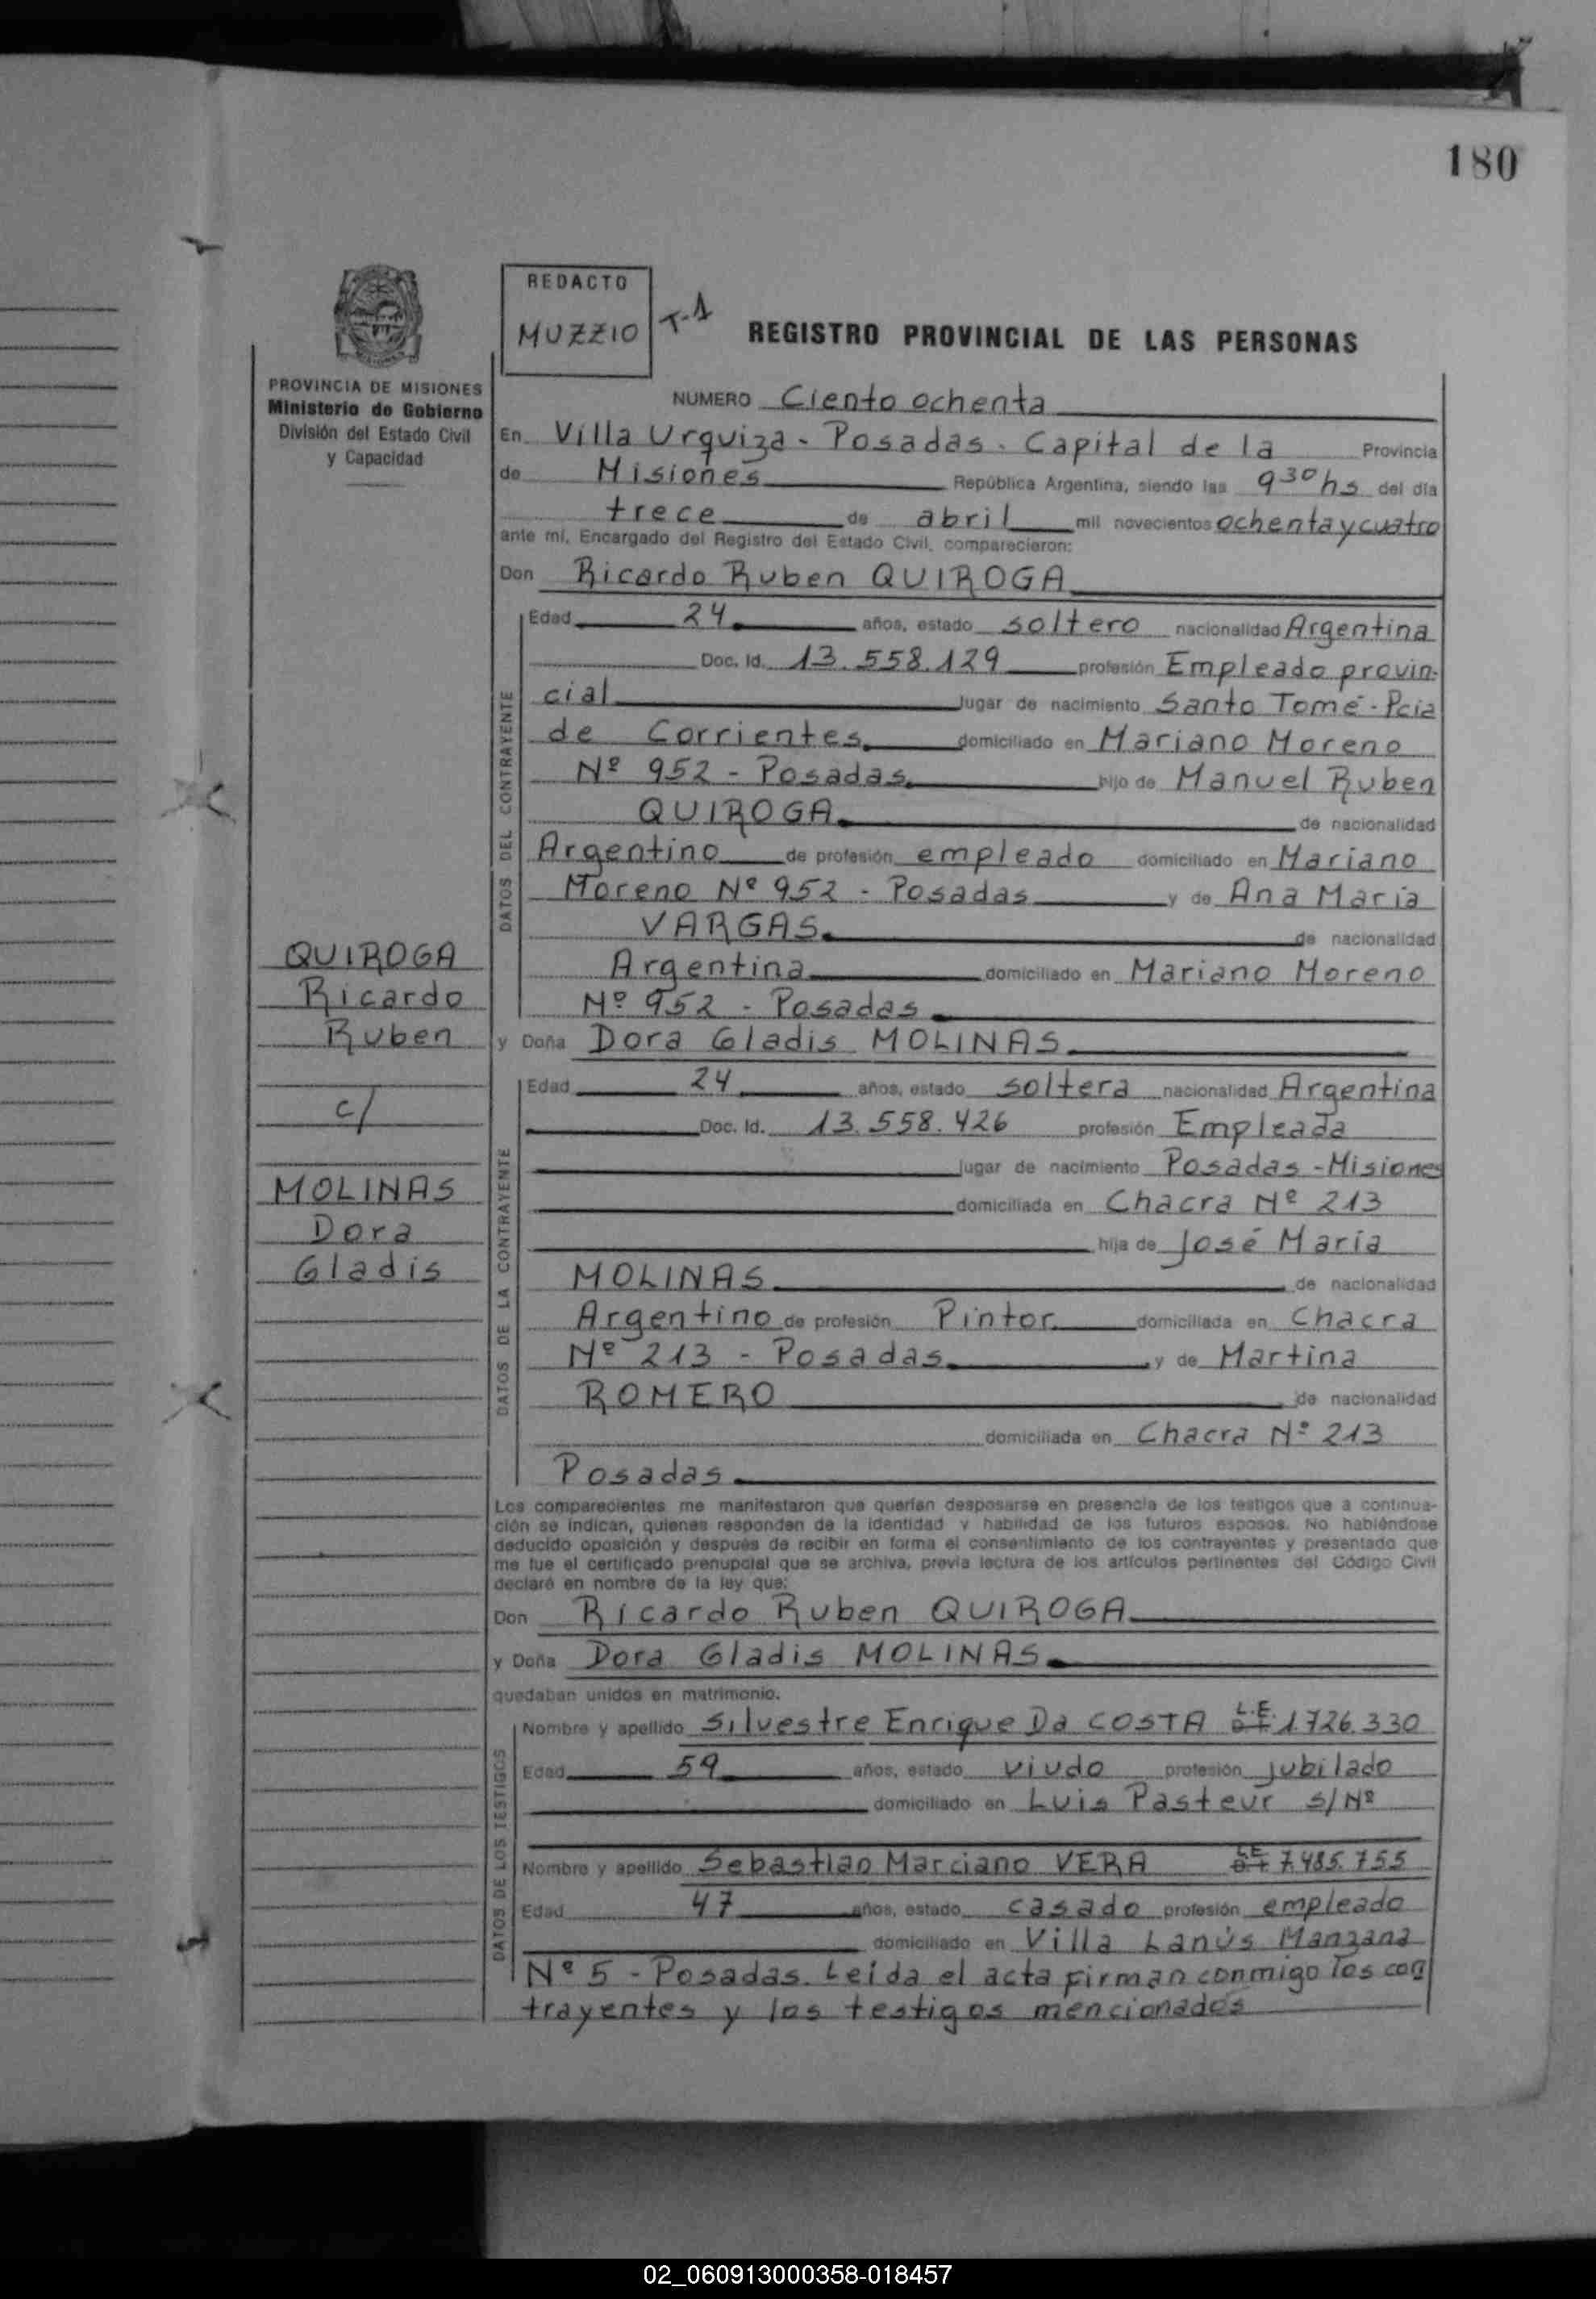 180
REDACTO
MUZZIO
T-1
REGISTRO PROVINCIAL DE LAS PERSONAS
PROVINCIA DE MISIONES
Ministerio de Gobierno
División del Estado Civil
y Capacidad
NUMERO Ciento ochenta
En Villa Urquiza - Posadas - Capital de la Provincia
de Misiones República Argentina, siendo las 9 30 hs del día
trece de abril mil novecientos ochenta y cuatro
ante mí, Encargado del Registro del Estado Civil, comparecieron:
Don Ricardo Ruben QUIROGA
DATOS DEL CONTRAYENTE
Edad 24 años, estado soltero nacionalidad Argentina
Doc. Id. 13.558.129 profesión Empleado provin-
cial lugar de nacimiento Santo Tomé - Pcia
de Corrientes domiciliado en Mariano Moreno
Nº 952 - Posadas hijo de Manuel Ruben
QUIROGA de nacionalidad
Argentino de profesión empleado domiciliado en Mariano
Moreno Nº 952 - Posadas y de Ana María
VARGAS de nacionalidad
Argentina domiciliado en Mariano Moreno
Nº 952 - Posadas
QUIROGA
Ricardo
Ruben
c/
MOLINAS
Dora
Gladis
y Doña Dora Gladis MOLINAS
DATOS DE LA CONTRAYENTE
Edad 24 años, estado soltera nacionalidad Argentina
Doc. Id. 13.558.426 profesión Empleada
lugar de nacimiento Posadas - Misiones
domiciliada en Chacra Nº 213
hija de José María
MOLINAS de nacionalidad
Argentino de profesión Pintor domiciliada en Chacra
Nº 213 - Posadas y de Martina
ROMERO de nacionalidad
domiciliada en Chacra Nº 213
Posadas
Los comparecientes me manifestaron que querían desposarse en presencia de los testigos que a continua-
ción se indican, quienes responden de la identidad y habilidad de los futuros esposos. No habiéndose
deducido oposición y después de recibir en forma el consentimiento de los contrayentes y presentado que
me fue el certificado prenupcial que se archiva, previa lectura de los artículos pertinentes del Código Civil
declaré en nombre de la ley que:
Don Ricardo Ruben QUIROGA
y Doña Dora Gladis MOLINAS
quedaban unidos en matrimonio.
DATOS DE LOS TESTIGOS
Nombre y apellido Silvestre Enrique Da COSTA L.E. 1.726.330
Edad 59 años, estado viudo profesión jubilado
domiciliado en Luis Pasteur S/Nº
Nombre y apellido Sebastian Marciano VERA LE 7.485.755
Edad 47 años, estado casado profesión empleado
domiciliado en Villa Lanús Manzana
Nº 5 - Posadas. Leida el acta firman conmigo los con
trayentes y los testigos mencionados
02_060913000358-018457